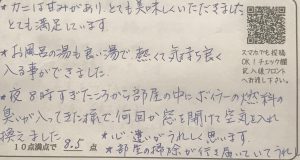 ★カニは甘みがあり、とても美味しくいただきました
とても満足しています。
★お風呂の湯も良い湯で 熱くて気持ち良く
入る事ができました。
★夜8時すぎたころから部屋の中にボイラーの燃料の
臭いが入ってきた様で、何回か窓を開けて空気を入れ
換えました
★心遣いがうれしく思います。
10点満点で 8.5 点
★部屋の掃除が行き届いていてうれし
スマホでも投稿
OK!チェック欄
記入後フロント